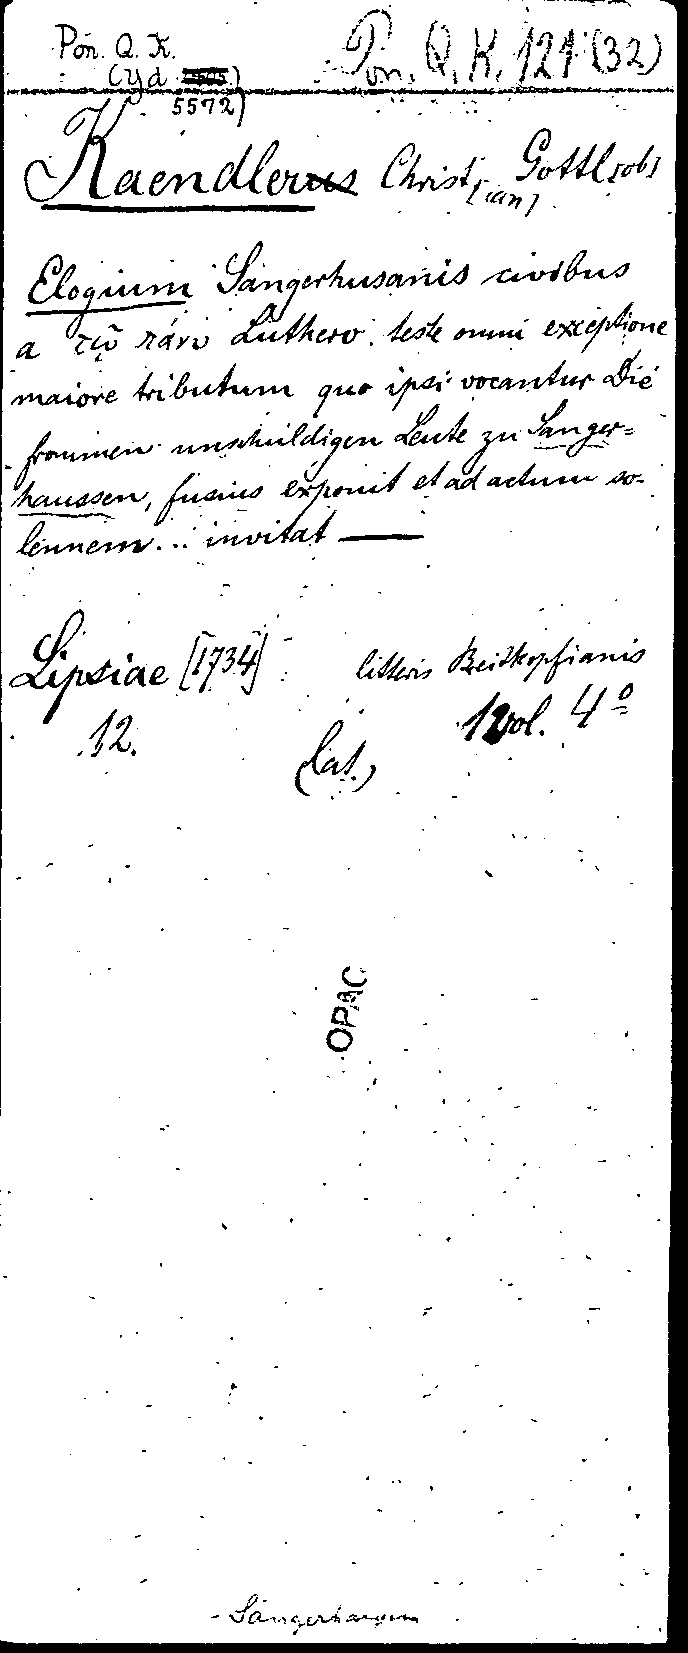 Pon. Q. K.
(Yd
5572)
Pon. Q. K. 121 (32)
Kaendlerus Christ[ian] Gottl[ob]
Elogium Sangerhusanis civibus
a τῷ πάνυ Luthero teste omni exceptione
maiore tributum quo ipsi vocantur Die
frommen unschuldigen Leute zu Sanger=
haussen, fusius exponit et ad actum so-
lennem... invitat —
Lipsiae [1734] litteris Breitkopfianis
12. 1 vol. 4º
(lat.)
OPAC
Sangerhausen